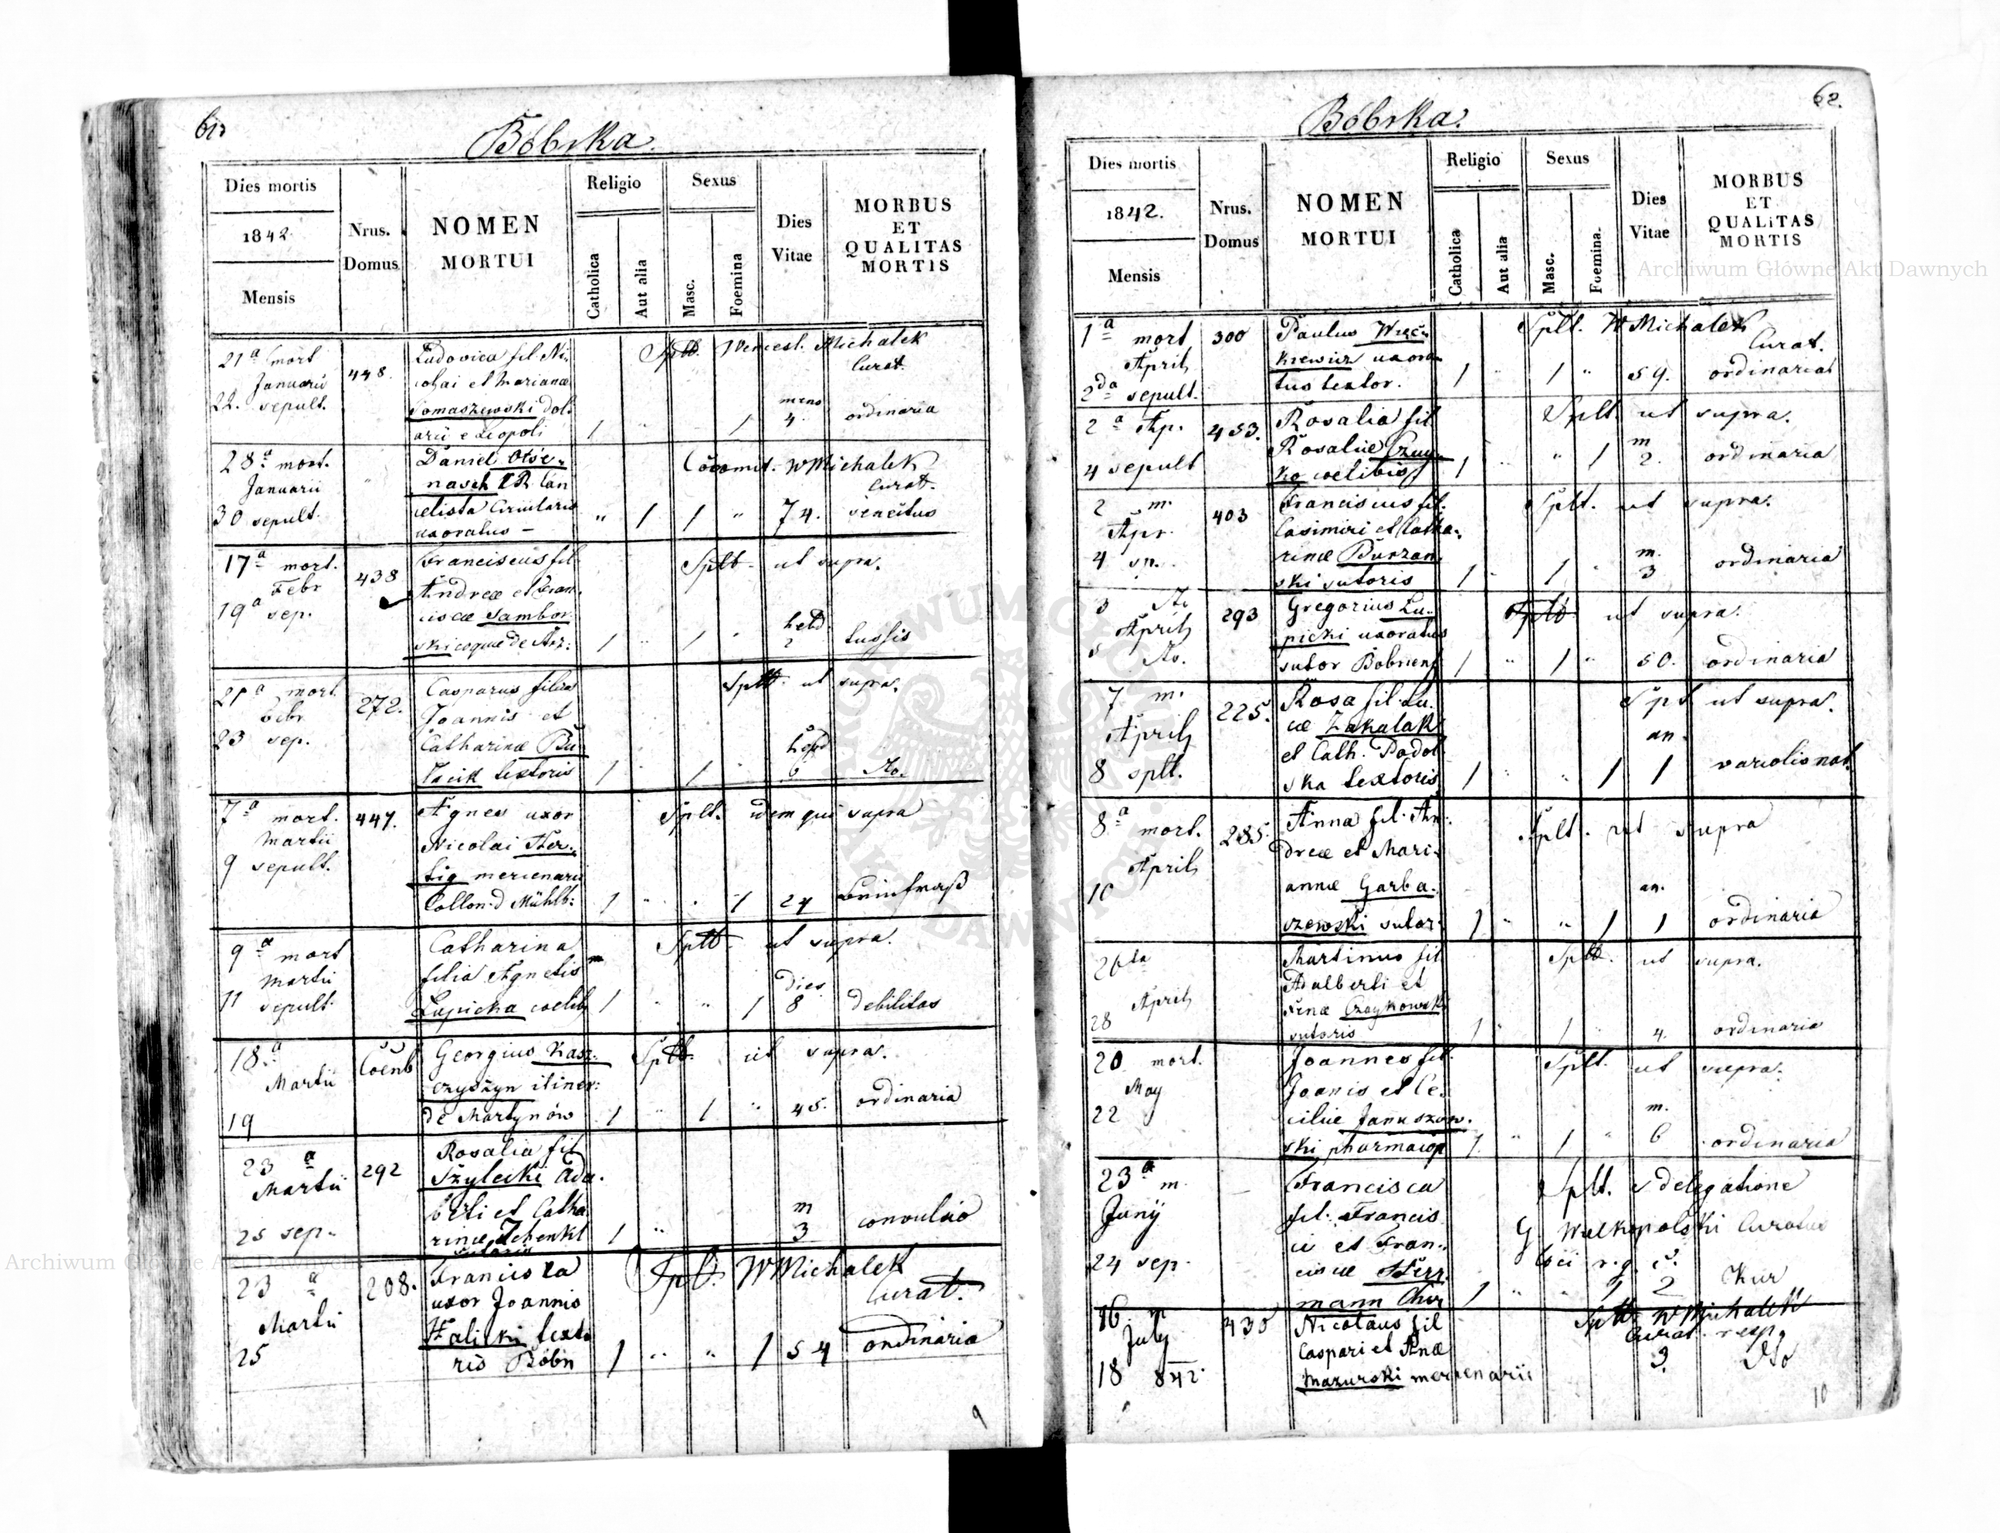 61
Bóbrka.
Dies mortis
1842
Mensis
Nrus.
Domus
NOMEN
MORTUI
Religio
Catholica
Aut alia
Sexus
Masc.
Foemina
Dies
Vitae
MORBUS
ET
QUALITAS
MORTIS
21a mort
Januarii
22. sepult.
448.
Ludovica fil Ni-
colai et Marianae
Tomaszewski dol-
arii e Leopoli
Splt. Wencesl. Michalek
Curat.
1 " 1 4. ordinaria
28a mort.
Januarii
30 sepult.
"
Daniel
uxoratus –
Comit. W Michalek
Curat.
" 1 1 " 74.
17a mort.
Febr
19a sep.
438
Franciscus fil.
Andreae et Fran-
ciscae Sambor-
ski
Splt. ut supra.
1 " 1 " hebd. 2 tussis
21a mort.
Febr
23 sep.
272.
Casparus filius
Joannis et
Catharinae
textoris
Splt. ut supra.
1 " 1 " hebd 6 do.
7a mort.
Martii
9 sepult.
447.
Agnes uxor
Nicolai Her-
tig mercenarii
Collon. d Mühlb:
Splt. idem qui supra
1 " " 1 27
9a mort
Martii
11 sepult.
Catharina
filia Agnetis
Łupicka coelib
Splt. ut supra.
1 " " 1 dies 8 debilitas
18a
Martii
19
Georgius Kasz-
czyszyn itiner:
de Martynów
Splt. ut supra.
1 " 1 " 45. ordinaria
23a
Martii
25 sep.
292
Rosalia fil
Szylecki Ada-
berti et Catha
rinae
sutoris
1 " m 3 convulsio
23a
Martii
25
208.
Francisca
uxor Joannis
Halicki texto
ris Bóbr
Splt. W Michalek
Curat.
1 " " 1 54 ordinaria
9
62.
Bóbrka.
Dies mortis
1842.
Mensis
Nrus.
Domus
NOMEN
MORTUI
Religio
Catholica
Aut alia
Sexus
Masc.
Foemina.
Dies
Vitae
MORBUS
ET
QUALITAS
MORTIS
1a mort
April
2da sepult.
300
Paulus Więc-
kiewicz uxora
tus textor.
Splt. W Michalek
Curat.
1 " 1 " 59. ordinaria
2a Ap.
4 sepult
453.
Rosalia fil
Rosaliae
coelibis
Splt. ut supra.
1 " 1 m 2. ordinaria
2 m.
Apr.
4 sp.
403
Franciscus fil.
Casimiri et Catha-
rinae Burzan-
ski sutoris
Splt. ut supra.
1 " 1 m. 3 ordinaria
3 do
April
5 do.
293
Gregorius Łu-
picki uxoratus
sutor Bobrens
Splt ut supra.
1 " 1 " 50. ordinaria
7 m.
April
8 splt.
225.
Rosa fil. Lu-
cae Zakalak
et Cath. Podol
ska textoris
Splt ut supra.
1 " " 1 an. 1 variolis nat.
8a mort.
April
10
285.
Anna fil. An-
dreae et Mari-
annae Garba-
szewski sutor.
Splt. ut supra
1 " " 1 an. 1 ordinaria
26ta
April
28
Martinus fil
Adalberti et
Annae Czaykowski
sutoris
Splt. ut supra.
1 " 1 " 4. ordinaria
20 mort.
May
22
Joannes fil.
Joanis et Ce-
ciliae Januszow-
ski pharmacop
Splt. ut supra.
1. " 1 " m. 6 ordinaria
23a m.
Junij
24 sep.
Francisca
fil. Francis
ci et Fran-
ciscae
mann
Splt. e delegatione
G Wielkopolski Curatus
1 " " 1 2
16 m
July
18 842.
430
Nicolaus fil
Caspari et Anae
Mazurski mercenarii
Splt W Michalek
Curat. resp.
3. do
10
Archiwum Główne Akt Dawnych
Archiwum Główne Akt Dawnych
ARCHIWUM GŁÓWNE AKT DAWNYCH